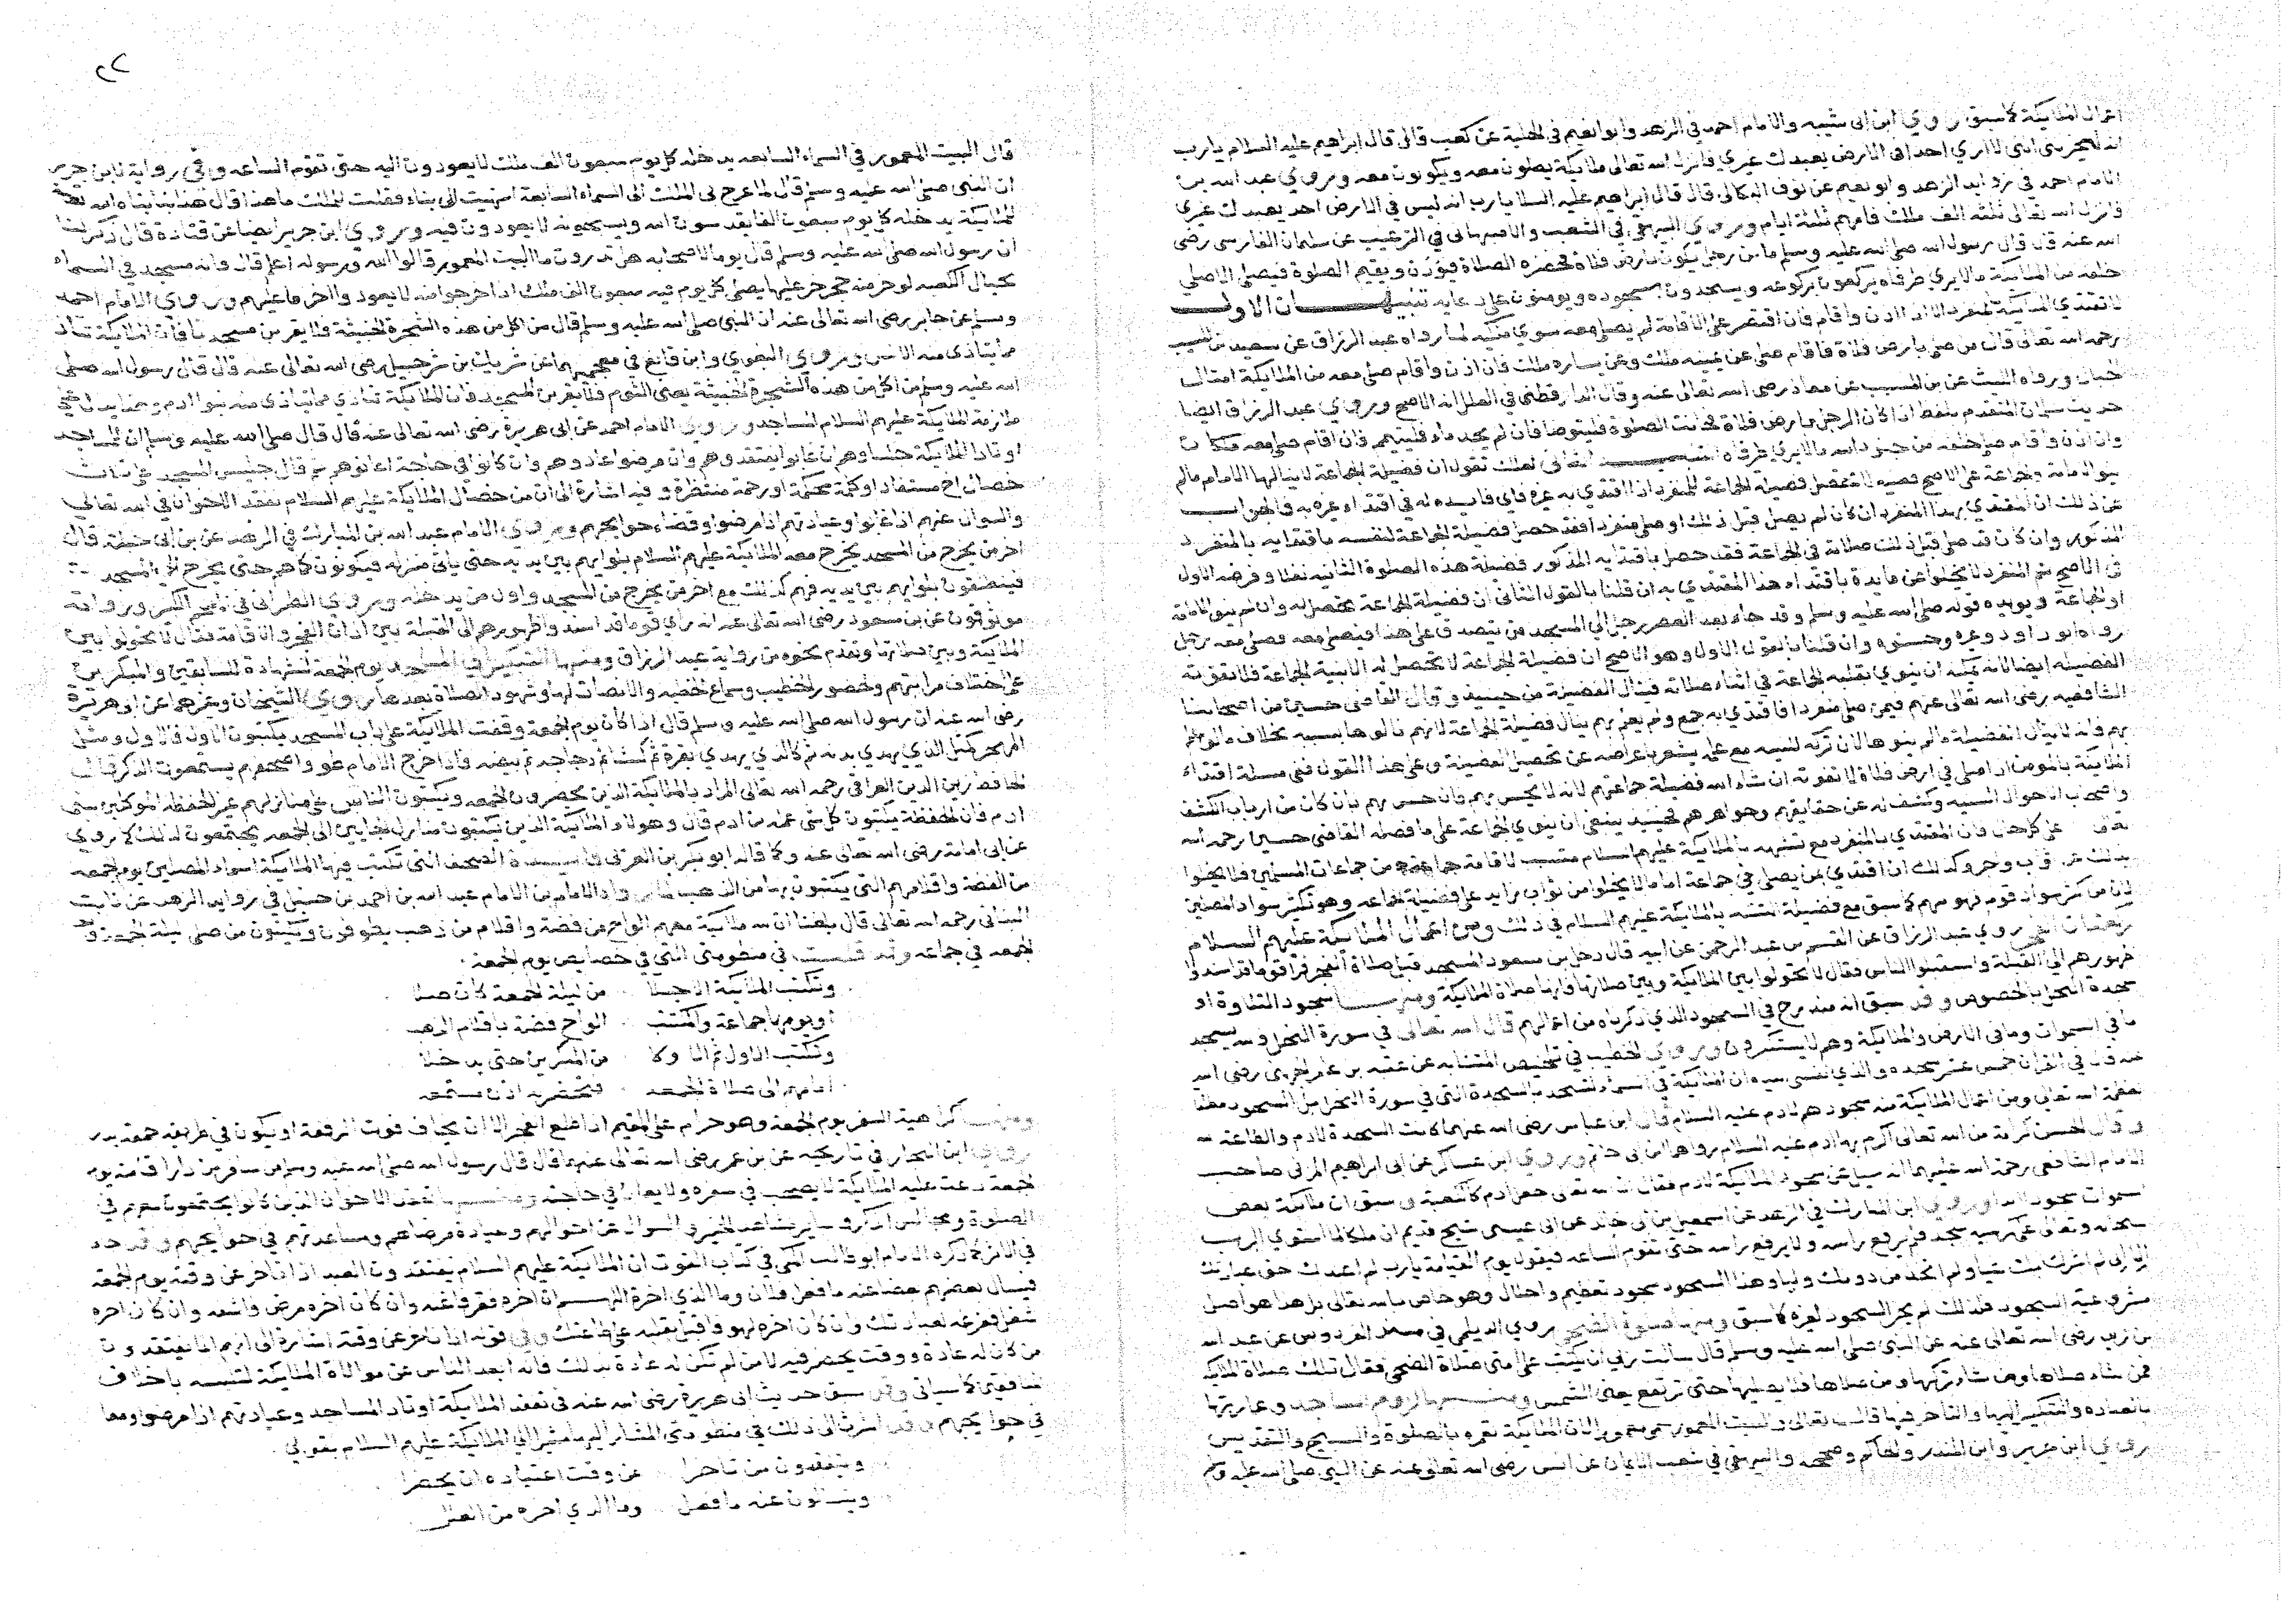 اعمال الملايكة كما سبق وروي ابن ابي شيبه والامام احمد في الزهد وابو نعيم في الحلية عن كعب قال قال ابراهيم عليه السلام يا رب
انه ليحزنني اني لا اري احدا في الارض يعبدك غيري فانزل الله تعالى ملايكة يصلون معه ويكونون معه وروي عبد الله بن
الامام احمد في زوايد الزهد وابو نعيم عن نوف البكالي قال قال ابراهيم عليه السلام يا رب انه ليس في الارض احد يعبدك غيري
فانزل الله تعالى ثلثة الف ملك فامهم ثلثة ايام وروي البيهقي في الشعب والاصبهاني في الترغيب عن سلمان الفارسي رضي
الله عنه قال قال رسول الله صلى الله عليه وسلم ما من رجل يكون بارض فلاة فتحضره الصلاة فيؤذن ويقيم الصلوة فيصلي الا صلى
خلفه من الملايكة ما لا يري طرفاه يركعون بركوعه ويسجدون بسجوده ويومنون على دعايه تنبيهان الاول
لا تقتدي الملايكة بالمنفرد الا اذا اذن واقام فان اقتصر على الاقامة لم يصل معه سوي ملكيه لما رواه عبد الرزاق عن سعيد بن المسيب
رحمه الله تعالى قال من صلى بارض فلاة فاقام صلى عن يمينه ملك وعن يساره ملك فان اذن واقام صلى معه من الملايكة امثال
الجبال ورواه الليث عن بن المسيب عن معاذ رضي الله تعالى عنه وقال الدارقطني في العلل انه الاصح وروي عبد الرزاق ايضا
حديث سلمان المتقدم بلفظ اذا كان الرجل بارض فلاة فحانت الصلوة فليتوضا فان لم يجد ماء فليتيمم فان اقام صلى معه ملكاه
وان اذن واقام صلى خلفه من جنود الله ما لا يري طرفاه الثاني لعلك تقول ان فضيلة الجماعة لا ينالها الامام ما لم
ينو الامامة والجماعة على الاصح فضيلة الجماعة للمنفرد اذا اقتدي به غيره فاي فايده له في اقتداء غيره به فالجواب
عن ذلك ان المقتدي بهذا المنفرد ان كان لم يصل قبل ذلك او صلى منفردا فقد حصل فضيلة الجماعة لنفسه باقتدايه بالمنفرد
المذكور وان كان قد صلى قبل ذلك صلاته في الجماعة فقد حصل باقتدايه المذكور فضيلة هذه الصلوة الثانيه نفلا وفرضه الاول
في الاصح ثم المنفرد لا يخلوا عن فايدة باقتداء هذا المقتدي به ان قلنا بالقول الثاني ان فضيلة الجماعة تحصل له وان لم ينو الامامة
او الجماعة ويويده قوله صلى الله عليه وسلم وقد جاء بعد العصر رجل الى المسجد من يتصدق على هذا فيصلي معه فصلى معه رجل
رواه ابو داود وغيره وحسنوه وان قلنا بالقول الاول وهو الاصح ان فضيلة الجماعة لا تحصل له الا بنية الجماعة فلا تفوته
الفضيله ايضا لانه يمكنه ان ينوي بقلبه الجماعة في اثناء صلاته فينال الفضيلة من حينيذ وقال القاضي حسين من اصحابنا
الشافعيه رضي الله تعالى عنهم فيمن صلى منفردا فاقتدي به جمع ولم يعلم بهم ينال فضيلة الجماعة لانهم نالوها بسببه بخلاف ما لو علم
بهم فانه لا ينال الفضيلة ما لم ينوها لان تركه للنية مع علمه يشعر باعراضه عن تحصيل الفضيلة وعلى هذا القول ففي مسلة اقتداء
الملايكة بالمومن اذا صلى في ارض فلاة لا تفوته ان شاء الله فضيلة جماعتهم لانه لا يحس بهم فان حس بهم بان كان من ارباب الكشف
واصحاب الاحوال السنيه وكشف له عن حقايقهم وجواهرهم فحينيذ ينبغي ان ينوي الجماعة على ما فصله القاضي حسين رحمه الله
تعالى على كل حال فان المقتدي بالمنفرد مع تشبهه بالملايكة عليهم السلام متسبب لاقامة جماعة من جماعات المسلمين فلا يخلوا
بذلك من ثواب واجر وكذلك ان اقتدي بمن يصلي في جماعة اماما لا يخلوا من ثواب زايد على فضيلة الجماعه وهو تكثير سواد المصلين
لان من كثر سواد قوم فهو منهم كما سبق مع فضيلة التشبه بالملايكة عليهم السلام في ذلك ومن اعمال الملايكة عليهم السلام
ركعتان الفجر روي عبد الرزاق عن القسم بن عبد الرحمن عن ابيه قال دخل بن مسعود المسجد قبل صلاة الفجر فراي قوما قد اسندوا
ظهورهم الي القبلة واستقبلوا الناس فقال لا تحولوا بين الملايكة وبين صلاتها فانها صلاة الملايكة ومنها سجود التلاوة او
سجدة النحل بالخصوص وقد سبق انه مندرج في السجود الذي ذكرناه من اعمالهم قال الله تعالى في سورة النحل ولله يسجد
ما في السموات وما في الارض والملايكة وهم لا يستكبرون وروي الخطيب في تلخيص المتشابه عن عقبه بن عامر الجهني رضي الله
عنه قال في القران خمس عشر سجده والذي نفسي بيده ان الملايكة في السماء لتسجد بالسجدة التي في سورة النحل من السجود مطلقا
لعظمة الله تعالى ومن اعمال الملايكة منه سجودهم لادم عليه السلام قال ابن عباس رضي الله عنهما كانت السجدة لادم والطاعة لله
وقال الحسن كرامة من الله تعالى اكرم بها ادم عليه السلام رواهما ابن ابي حاتم وروي ابن عساكر عن ابي ابراهيم المزني صاحب
الامام الشافعي رحمة الله عليهما انه سيل عن سجود الملايكة لادم فقال ان الله تعالى جعل ادم كالكعبة وسبق ان ملايكة بعض
السموات سجود ابدا وروي ابن المبارك في الزهد عن اسمعيل بن ابي خالد عن ابي عيسى شيخ قديم ان ملكا لما استوي الرب
سبحانه وتعالى على كرسيه سجد فلم يرفع راسه ولا يرفع راسه حتى تقوم الساعه فيقول يوم القيامة يا رب لم اعبدك حق عبادتك
الا اني لم اشرك بك شيا ولم اتخذ من دونك وليا وهذا السجود سجود تعظيم واجلال وهو خاص بالله تعالى بل هذا هو اصل
مشروعية السجود فلذلك لم يجز السجود لغيره كما سبق ومنها صلوة الضحى روي الديلمي في مسند الفردوس عن عبد الله
بن زيد رضي الله تعالى عنه عن النبي صلى الله عليه وسلم قال سالت ربي ان يكتب على امتي صلاة الضحى فقال تلك صلاة الملايكة
فمن شاء صلاها ومن شاء تركها ومن صلاها فلا يصليها حتى ترتفع يعني الشمس ومنها لزوم المساجد وعمارتها
بالعباده والتبكير اليها والتاخر فيها قال الله تعالى والبيت المعمور سمي معمورا لان الملايكة تعمره بالصلوة والتسبيح والتقديس
وروي ابن جرير وابن المنذر والحاكم وصححه والبيهقي في شعب الايمان عن انس رضي الله تعالى عنه عن النبي صلى الله عليه وسلم
٢٢
قال البيت المعمور في السماء السابعه يدخله كل يوم سبعون الف ملك لا يعودون اليه حتى تقوم الساعه وفي رواية لابن جرير
ان النبي صلى الله عليه وسلم قال لما عرج بي الملك الى السماء السابعة انتهيت الى بناء فقلت للملك ما هذا قال هذا بناء بناه الله تعالى
للملايكة يدخله كل يوم سبعون الفا يقدسون الله ويسبحونه لا يعودون فيه وروي ابن جرير ايضا عن قتادة قال ذكر لنا
ان رسول الله صلى الله عليه وسلم قال يوما لاصحابه هل تدرون ما البيت المعمور قالوا الله ورسوله اعلم قال فانه مسجد في السماء
بحيال الكعبه لو خر منه حجر خر عليها يصلي كل يوم فيه سبعون الف ملك اذا خرجوا منه لا يعودوا اخر ما عليهم وروي الامام احمد
ومسلم عن جابر رضي الله تعالى عنه ان النبي صلى الله عليه وسلم قال من اكل من هذه الشجرة الخبيثة فلا يقربن مسجدنا فان الملايكة تتاذي
مما يتاذى منه الانس وروي البغوي وابن قانع في معجميهما عن شريك بن شرحبيل رضي الله تعالى عنه قال قال رسول الله صلى
الله عليه وسلم من اكل من هذه الشجرة الخبيثة يعني الثوم فلا يقربن المسجد فان الملايكة تتاذي مما يتاذى منه بنوا ادم
ملازمة الملايكة عليهم السلام المساجد وروي الامام احمد عن ابي هريرة رضي الله تعالى عنه قال قال صلى الله عليه وسلم ان للمساجد
اوتادا الملايكة جلساوهم ان غابوا يفتقدوهم وان مرضوا عادوهم وان كانوا في حاجة اعانوهم ثم قال جليس المسجد على ثلاث
خصال اخ مستفاد او كلمة محكمة او رحمة منتظرة وفيه اشارة الى ان من خصال الملايكة عليهم السلام تفقد الاخوان في الله تعالى
والسوال عنهم اذا غابوا وعيادتهم اذا مرضوا وقضاء حوايجهم وروي الامام عبد الله بن المبارك في الزهد عن بن ابي حنظلة قال
اخر من يخرج من المسجد يخرج معه الملايكة عليهم السلام بلوايهم بين يديه حتى ياتي منزله فيكونون كما هم حتى يخرج الى المسجد
فينطلقون بلوايهم بين يديه فهم كذلك مع اخر من يخرج من المسجد واول من يدخله وروي الطبراني في معجم الكبير ورواته
موثوقون عن بن مسعود رضي الله تعالى عنه انه راي قوما قد اسندوا ظهورهم الى القبلة بين اذان الفجر والاقامة فقال لا تحولوا بين
الملايكة وبين صلاتها وتقدم نحوه من رواية عبد الرزاق ومنها التبكير الى المساجد يوم الجمعة لشهادة السابقين والمبكرين
على اختلاف مراتبهم ولحضور الخطيب وسماع الخطبه والانصات لها وشهود الصلاة بعدها روي الشيخان وغيرهما عن ابي هريرة
رضي الله عنه ان رسول الله صلى الله عليه وسلم قال اذا كان يوم الجمعة وقفت الملايكة على باب المسجد يكتبون الاول فالاول ومثل
المهجر كمثل الذي يهدي بدنه ثم كالذي يهدي بقرة ثم كبشا ثم دجاجه ثم بيضه فاذا خرج الامام طووا صحفهم يستمعون الذكر قال
الحافظ زين الدين العراقي رحمه الله تعالى المراد بالملايكة الذين يحضرون الجمعه ويكتبون الناس على منازلهم غير الحفظه الموكلين ببني
ادم فان الحفظة يكتبون كل شي عمله بن ادم قال وهولاء الملايكة الذين يكتبون منازل الجايين الى الجمعه يجتمعون لذلك كما روي
عن ابي امامة رضي الله تعالى عنه وكما قاله ابو بكر بن العربي الصحف التي تكتب فيها الملايكة اسماء المصلين يوم الجمعه
من الفضة واقلامهم التي يكتبون بها من الذهب رواه الامام بن الامام عبد الله بن احمد بن حنبل في زوايد الزهد عن ثابت
البناني رحمه الله تعالى قال بلغنا ان لله ملايكة معهم الواح من فضة واقلام من ذهب يطوفون ويكتبون من صلى ليلة الجمعة ويوم
الجمعه في جماعه وقد قلت في منظومتي التي في خصايص يوم الجمعة
وتكتب الملايكة الاجلا من ليلة الجمعة كان صلى
او يومها جماعة واكتتب الواح فضة باقلام الذهب
وتكتب الاول ثم الاولا من المبكرين حتى يدخلا
امامهم الى صلاة الجمعه فتحضر به اذن مستمعه
ومنها كراهية السفر يوم الجمعة وهو حرام على المقيم اذا طلع الفجر الا ان يخاف فوت الرفقة او يكون في طريقه جمعه
روي ابن النجار في تاريخه عن بن عمر رضي الله تعالى عنهما قال قال رسول الله صلى الله عليه وسلم من سافر من دار اقامة يوم
الجمعة دعت عليه الملايكة لا يصحب في سفره ولا يعان في حاجته ومنها تفقد الاخوان الذين كانوا يجتمعون معهم في
الصلوة ومجالس الذكر وساير مقاعد الخير والسوال عن احوالهم وعيادة مرضاهم ومساعدتهم في حوايجهم وقد جاء
في الاثر ذكره الامام ابو طالب المكي في كتاب القوت ان الملايكة عليهم السلام يفتقدون العبد اذا تاخر عن وقته يوم الجمعة
فيسال بعضهم بعضا عنه ما فعل فلان وما الذي اخره اللهم ان اخره فقر فاغنه وان كان اخره مرض فاشفه وان كان اخره
شغل ففرغه لعبادتك وان كان اخره لهو فاقبل بقلبه على طاعتك وفي قوله اذا تاخر عن وقته اشارة الى انهم انما يفتقدون
من كان له عادة ووقت يحضر فيه لا من لم تكن له عادة بذلك فانه ابعد الناس عن موالاة الملايكة لتشبهه باخلاف
المنافقين كما سياتي وقد سبق حديث ابي هريرة رضي الله عنه في تفقد الملايكة اوتاد المساجد وعيادتهم اذا مرضوا
في حوايجهم وقد اشرت الى ذلك في منظومتي المشار اليها مشيرا الى الملايكة عليهم السلام بقولي
ويفقدون من تاخرا عن وقت اعتياده ان يحضرا
ويسالون عنه ما فعل وما الذي اخره من العلل